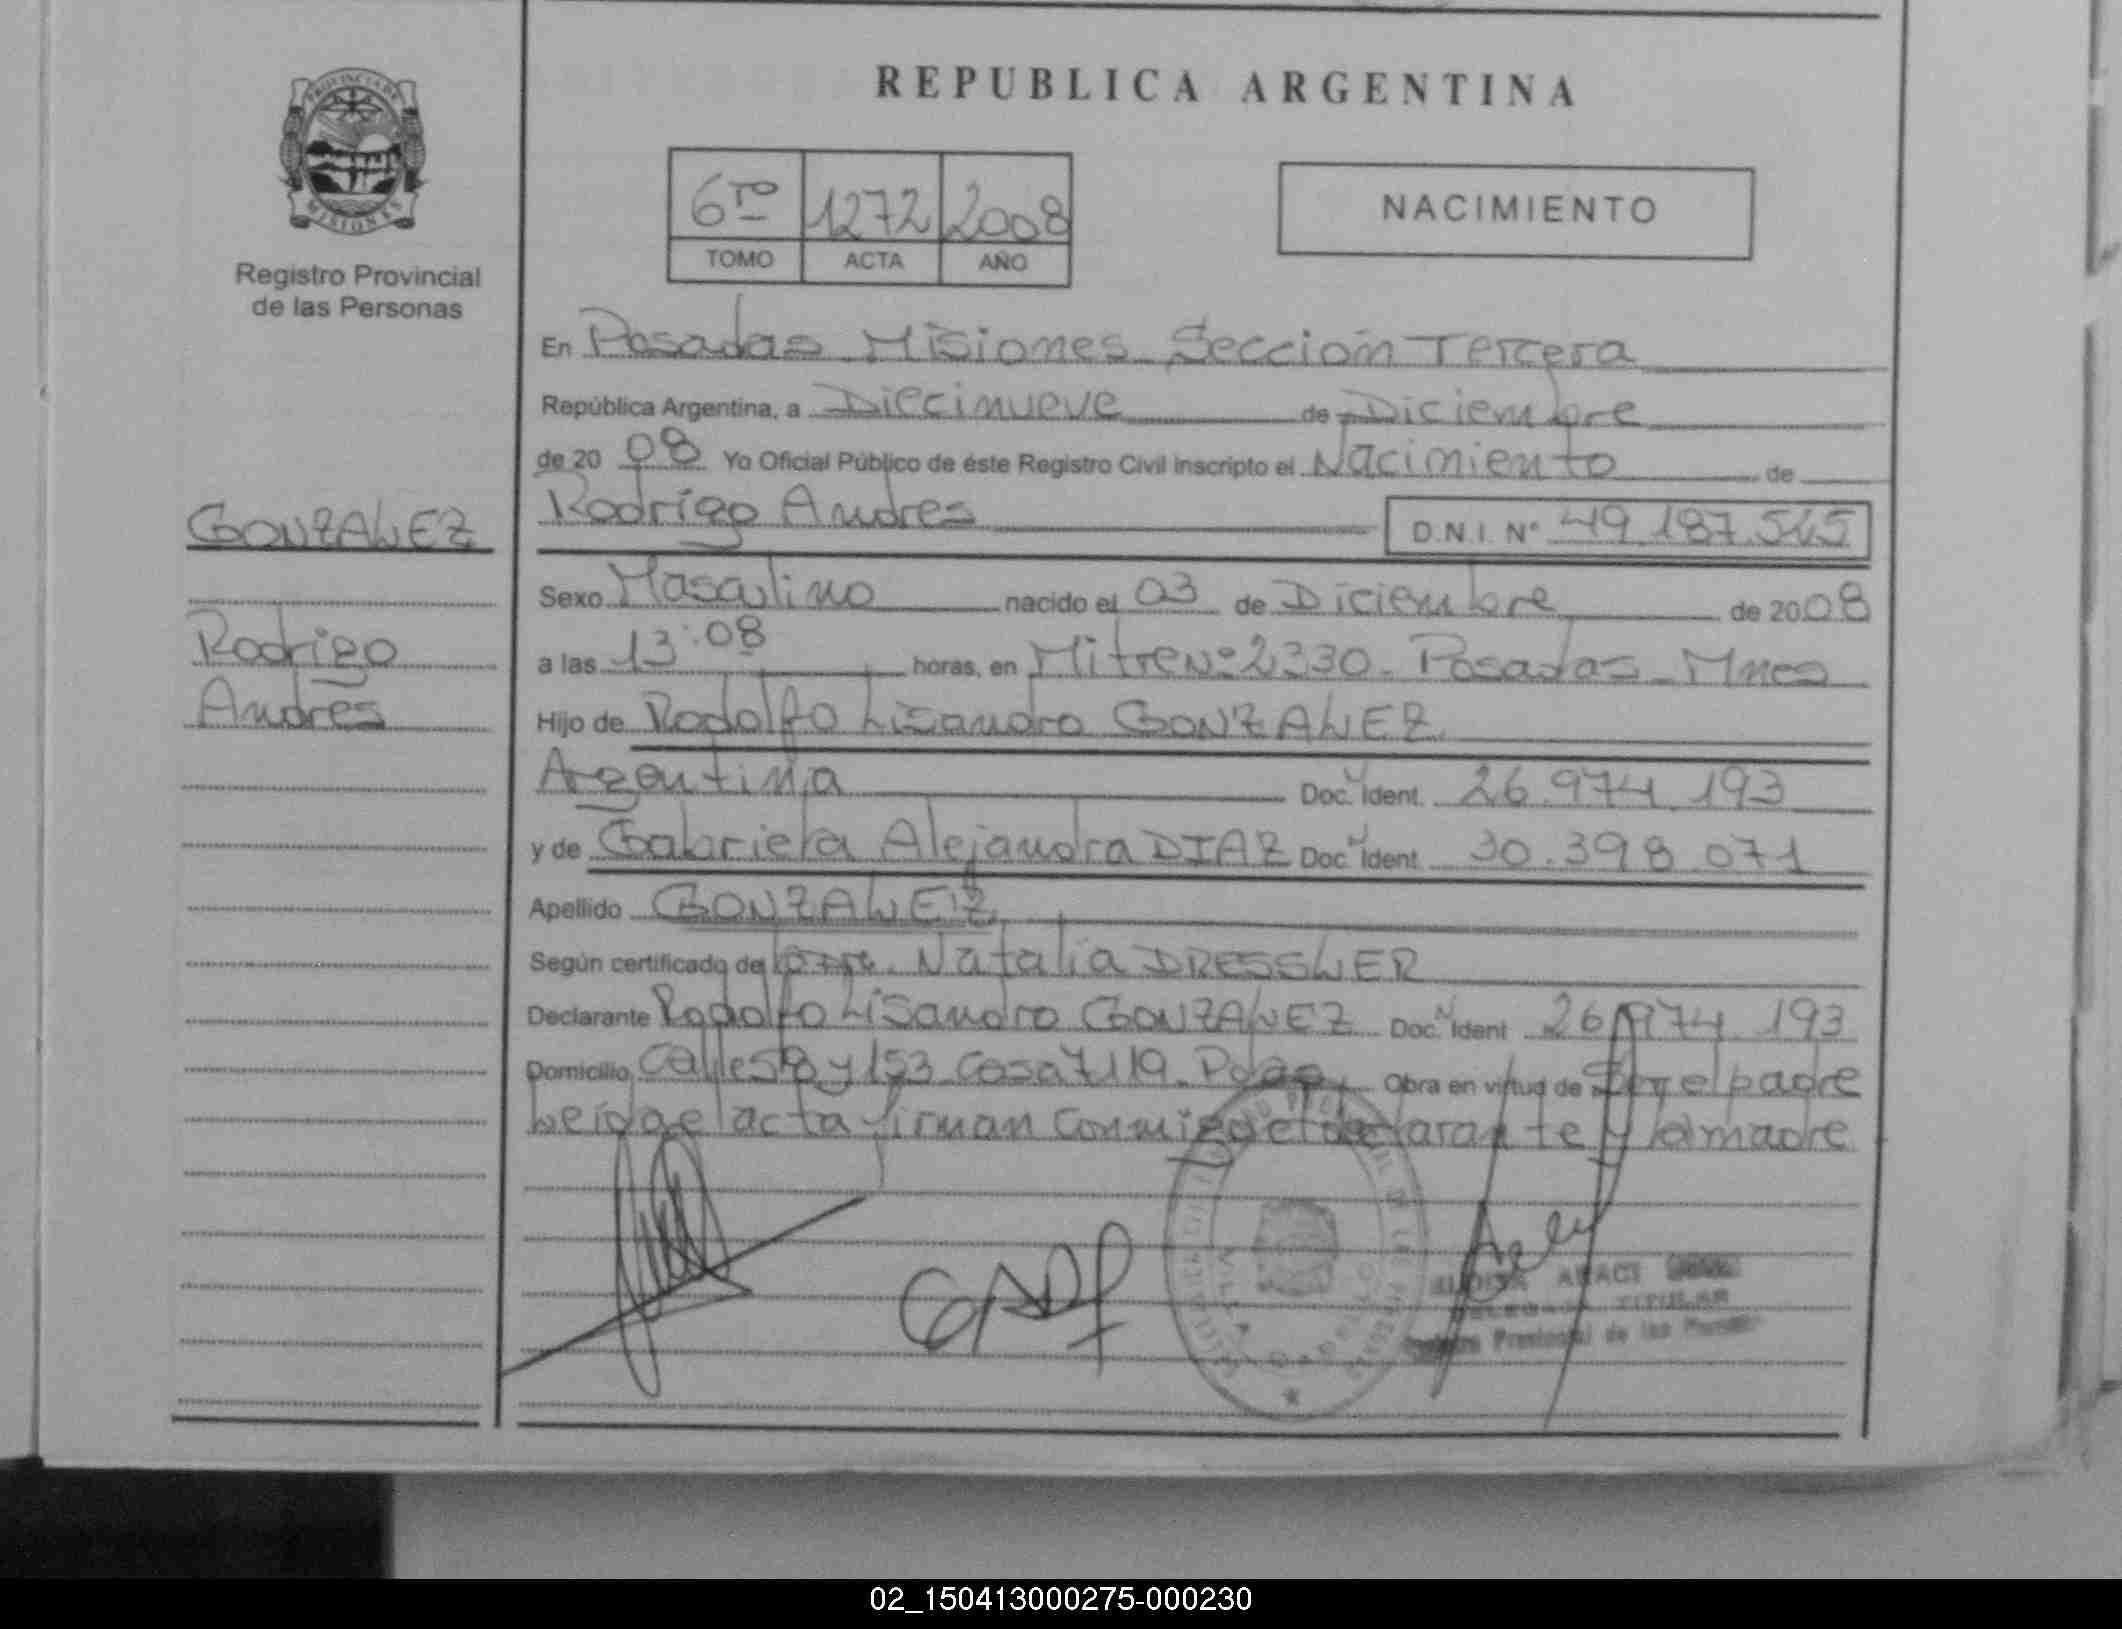 PROVINCIA DE
MISIONES
Registro Provincial
de las Personas
REPUBLICA ARGENTINA
6to 1272 2008
TOMO ACTA AÑO
NACIMIENTO
En Posadas Misiones Sección Tercera
República Argentina, a Diecinueve de Diciembre
de 20 08 Yo Oficial Público de éste Registro Civil inscripto el Nacimiento de
GONZALEZ
Rodrigo Andres D.N.I. N° 49.187.545
Sexo Masculino nacido el 03 de Diciembre de 2008
Rodrigo
Andres
a las 13:08 horas, en Mitre Nº 2330. Posadas - Mnes
Hijo de Rodolfo Lisandro GONZALEZ
Argentina Doc. Ident. 26.974.193
y de Gabriela Alejandra DIAZ Doc. Ident. 30.398.071
Apellido GONZALEZ
Según certificado de Natalia DRESSLER
Declarante Rodolfo Lisandro GONZALEZ Doc. Ident 26.974.193
Domicilio Calle y 153 Casa 7119 Pdas Obra en virtud de Ser el padre
Leida el acta firman conmigo el declarante y la madre
TITULAR
Provincial de las
02_150413000275-000230